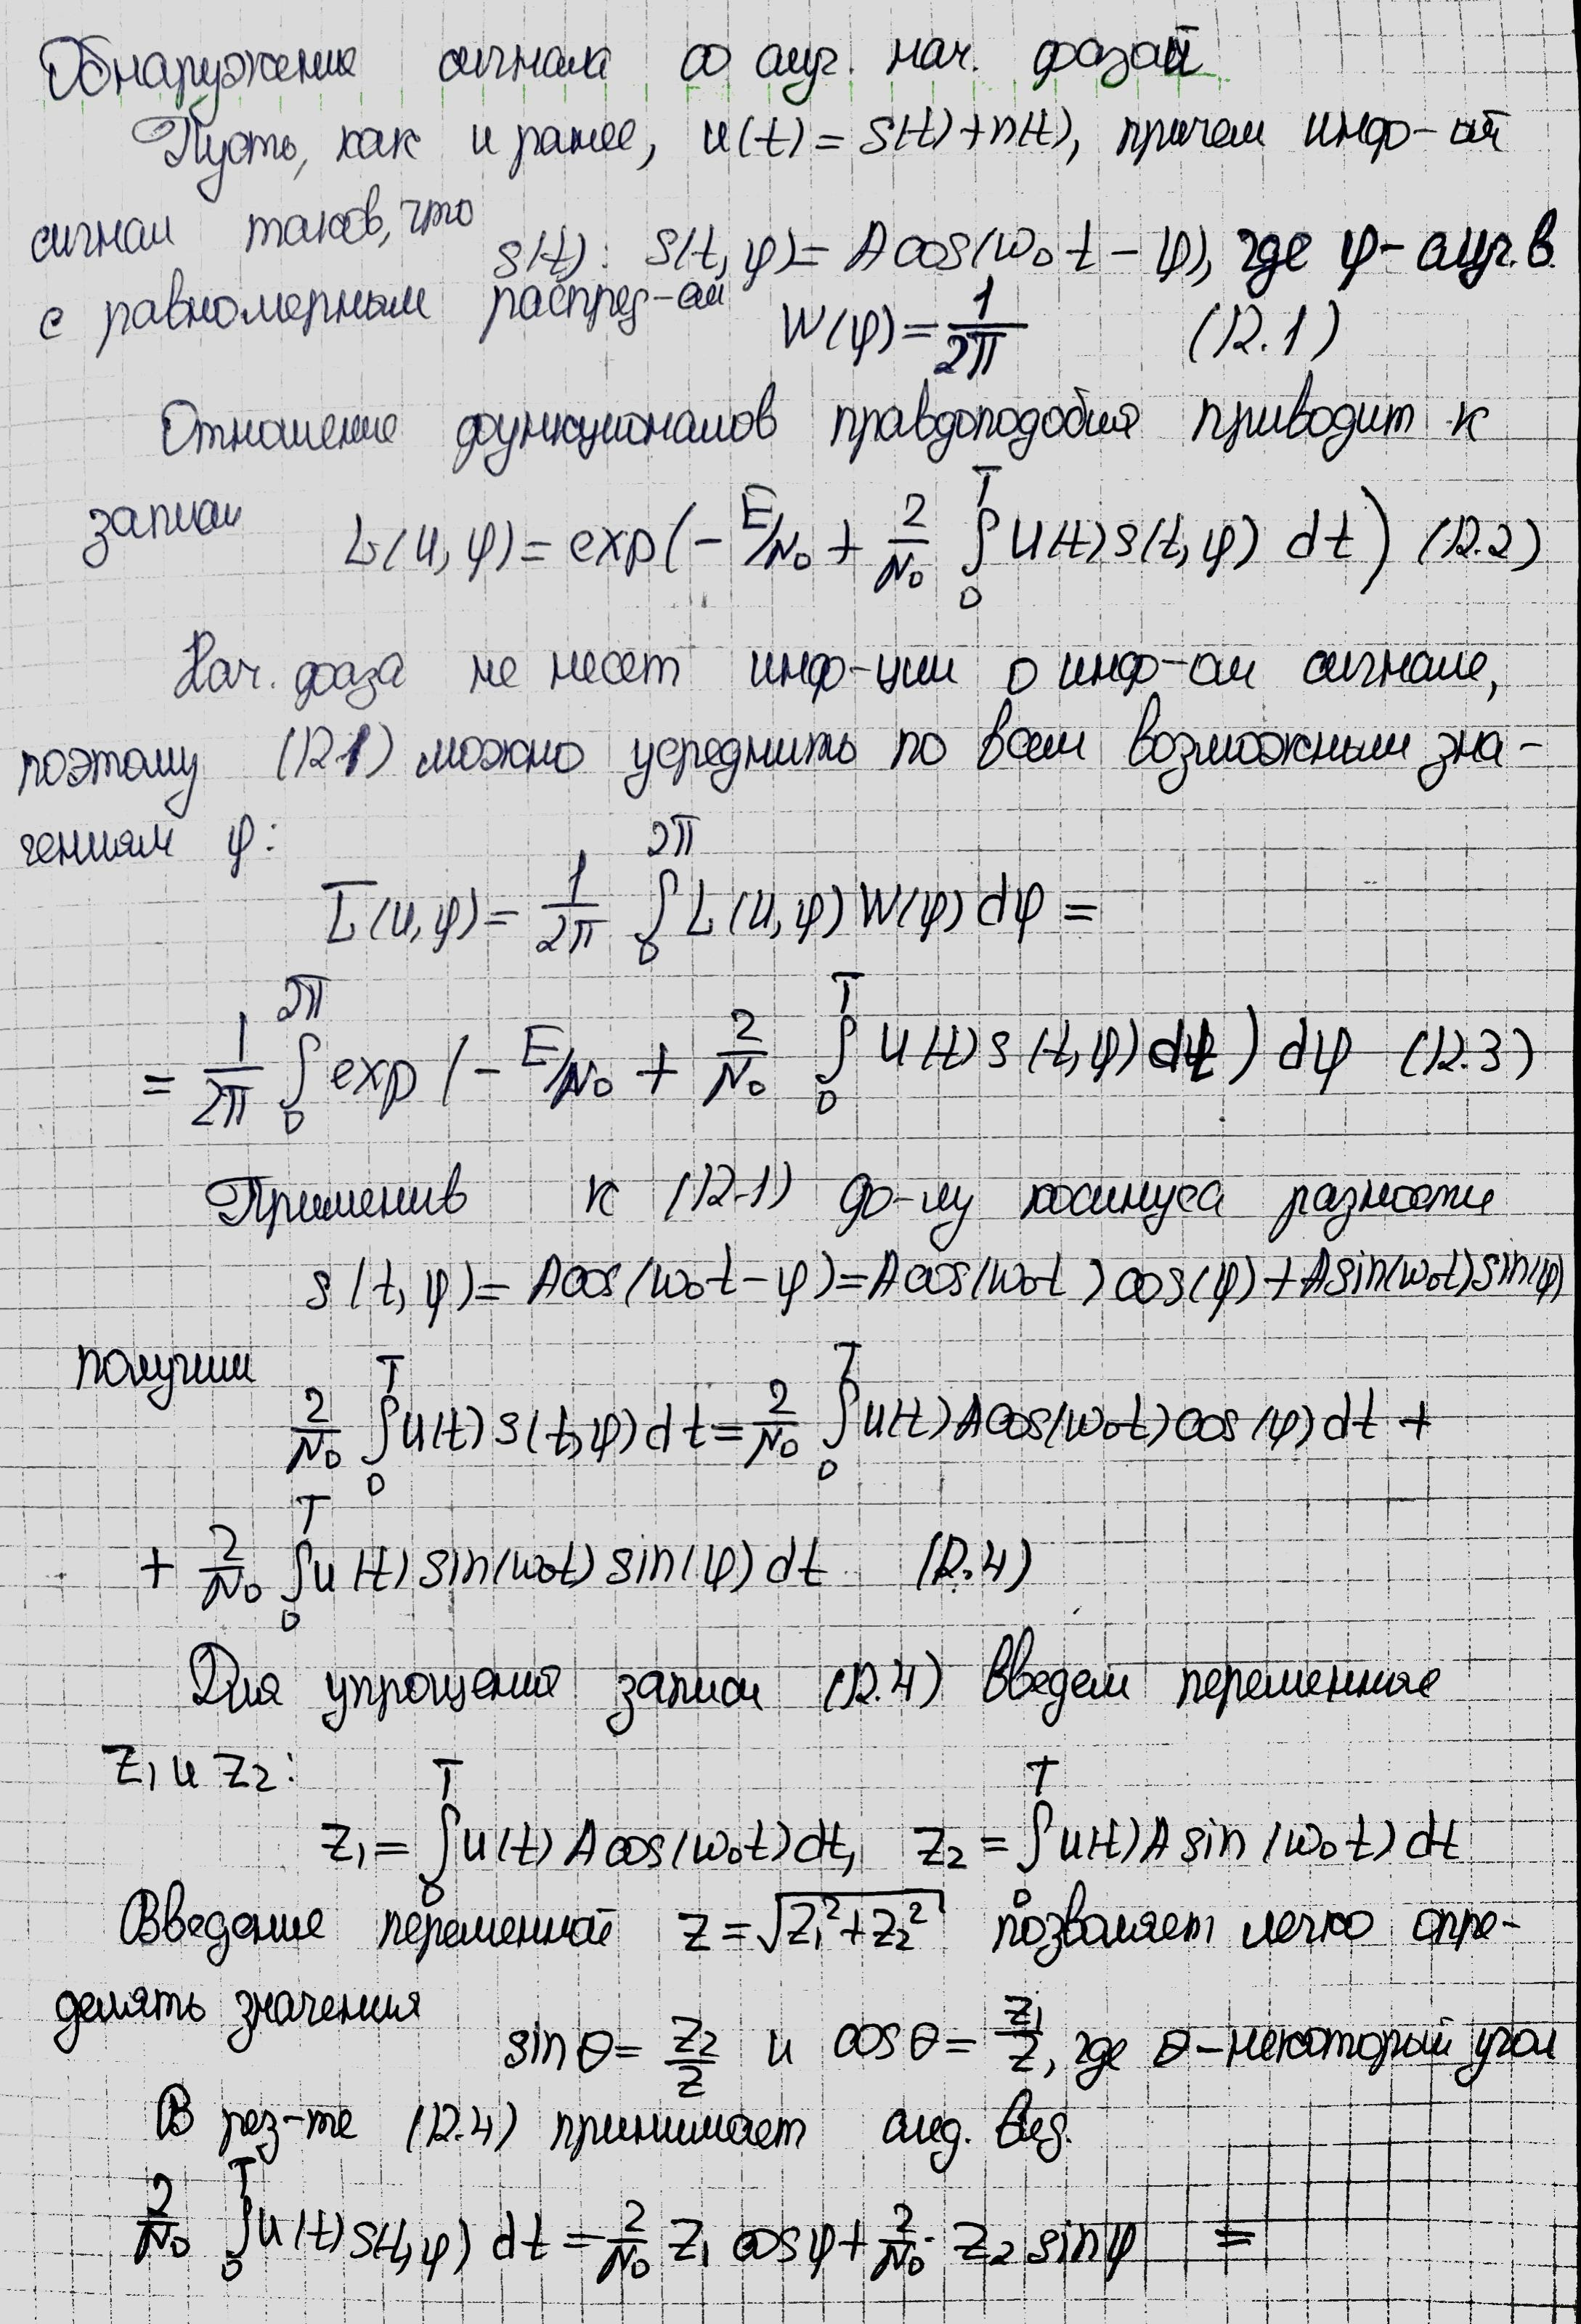 Обнаружение сигнала со случ. нач. фазой
Пусть, как и ранее, u(t) = s(t)+n(t), причем инф-ый
сигнал таков, что
s(t): s(t,φ)= A cos(ω₀t - φ), где φ - случ. в.
с равномерным распред-ем W(φ)= 1/2π (12.1)
Отношение функционалов правдоподобия приводит к
записи L(u,φ)= exp(- E/N₀ + 2/N₀ ∫₀ᵀ u(t)s(t,φ) dt) (12.2)
Нач. фаза не несет инф-ции о инф-ом сигнале,
поэтому (12.1) можно усреднить по всем возможным зна-
чениям φ:
L̅(u,φ)= 1/2π ∫₀^2π L(u,φ)W(φ)dφ =
= 1/2π ∫₀^2π exp(- E/N₀ + 2/N₀ ∫₀ᵀ u(t)s(t,φ)dt) dφ (12.3)
Применив к (12.1) ф-лу косинуса разности
s(t,φ)= Acos(ω₀t-φ)=Acos(ω₀t)cos(φ)+Asin(ω₀t)sin(φ)
получим
2/N₀ ∫₀ᵀ u(t)s(t,φ)dt= 2/N₀ ∫₀ᵀ u(t)Acos(ω₀t)cos(φ)dt +
+ 2/N₀ ∫₀ᵀ u(t)sin(ω₀t)sin(φ)dt (12.4)
Для упрощения записи (12.4) введем переменные
z₁ и z₂:
z₁= ∫₀ᵀ u(t)Acos(ω₀t)dt, z₂= ∫₀ᵀ u(t)Asin(ω₀t)dt
Введение переменной z=√(z₁²+z₂²) позволяет легко опре-
делять значения
sinθ= z₂/z и cosθ= z₁/z, где θ - некоторый угол
В рез-те (12.4) принимает след. вид.
2/N₀ ∫₀ᵀ u(t)s(t,φ) dt = 2/N₀ z₁ cosφ + 2/N₀ · z₂ sinφ =